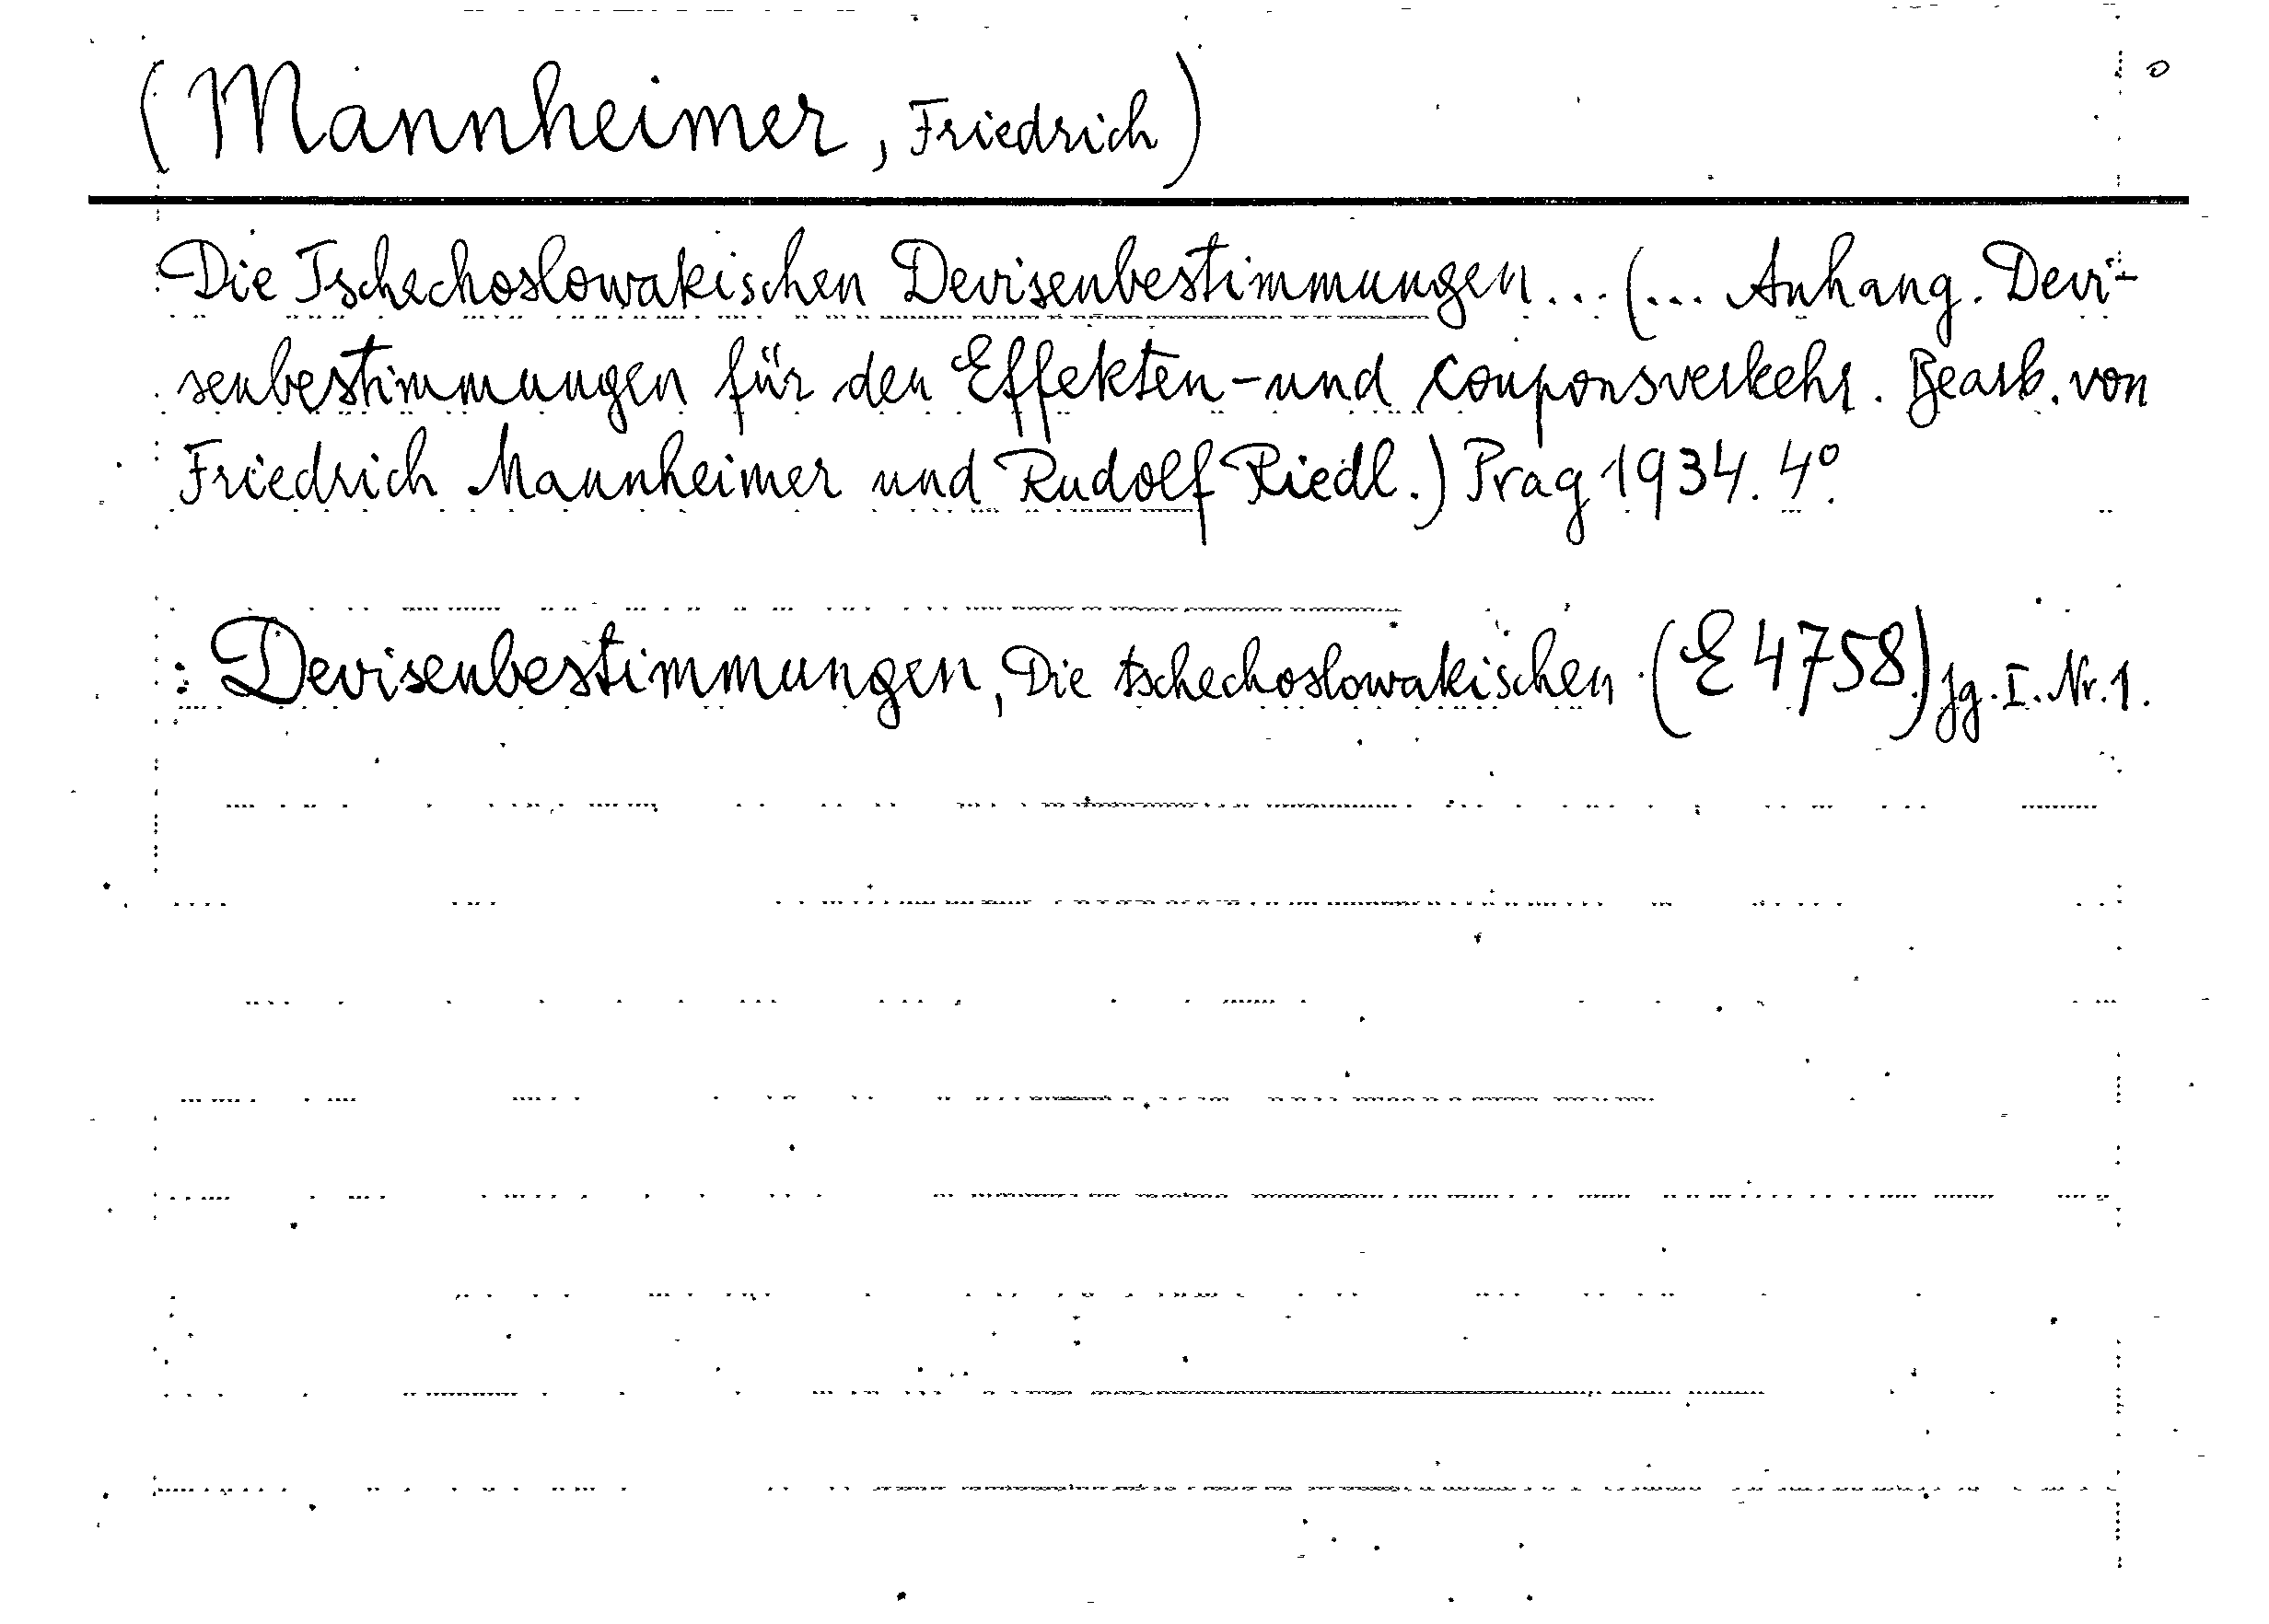 (Mannheimer, Friedrich)
Die Tschechoslowakischen Devisenbestimmungen... (... Anhang. Devi-
senbestimmungen für den Effekten- und Couponsverkehr. Bearb. von
Friedrich Mannheimer und Rudolf Riedl.) Prag 1934. 4°.
: Devisenbestimmungen, Die tschechoslowakischen (E 4758) Jg. I. Nr. 1.